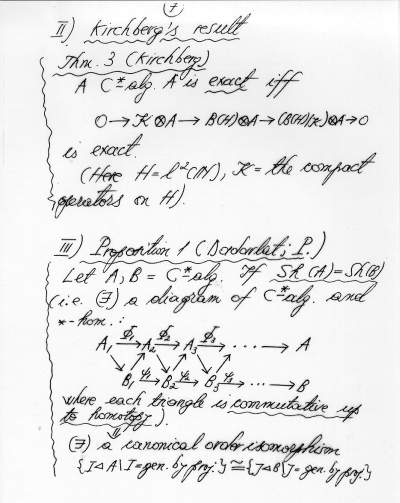 7
II) Kirchberg's result
Thm. 3 (Kirchberg)
A C*-alg. A is exact iff
0 → K ⊗ A → B(H) ⊗ A → (B(H)/K) ⊗ A → 0
is exact.
(Here H = l²(ℕ), K = the compact
operators on H).
III) Proposition 1 (Dadarlat; P.)
Let A, B = C*-alg. If Sh(A) = Sh(B)
(i.e. (∃) a diagram of C*-alg. and
*-hom.:
A₁ →Φ₁ A₂ →Φ₂ A₃ →Φ₃ ··· → A
B₁ →Ψ₁ B₂ →Ψ₂ B₃ →Ψ₃ ··· → B
where each triangle is commutative up
to homotopy).
⇓
(∃) a canonical order isomorphism
{I ◁ A | I = gen. by proj.} ≅ {J ◁ B | J = gen. by proj.}